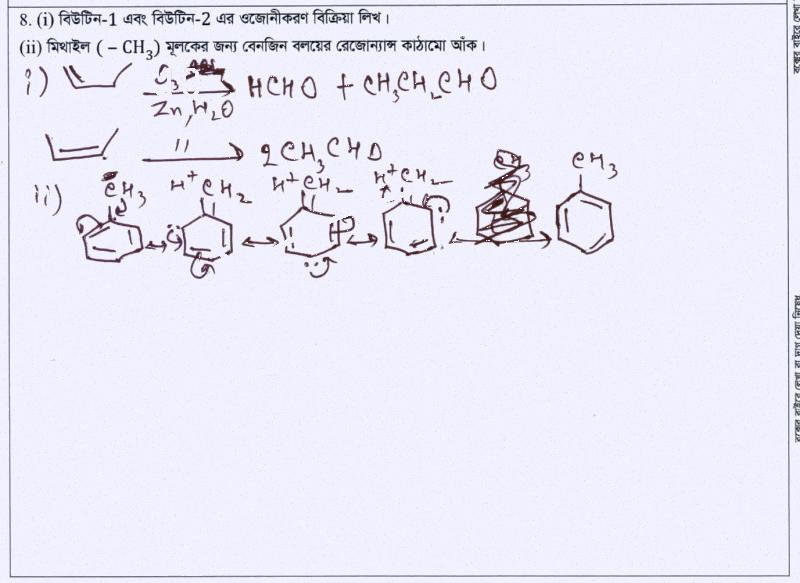 8. (i) বিউটিন-1 এবং বিউটিন-2 এর ওজোনীকরণ বিক্রিয়া লিখ।
(ii) মিথাইল ( – CH₃) মূলকের জন্য বেনজিন বলয়ের রেজোন্যান্স কাঠামো আঁক।
i) O₃ Zn, H₂O HCHO + CH₃CH₂CHO
〃 2CH₃CHO
ii) CH₃ H⁺ CH₂ H⁺ CH₂ H⁺ CH₂ CH₃